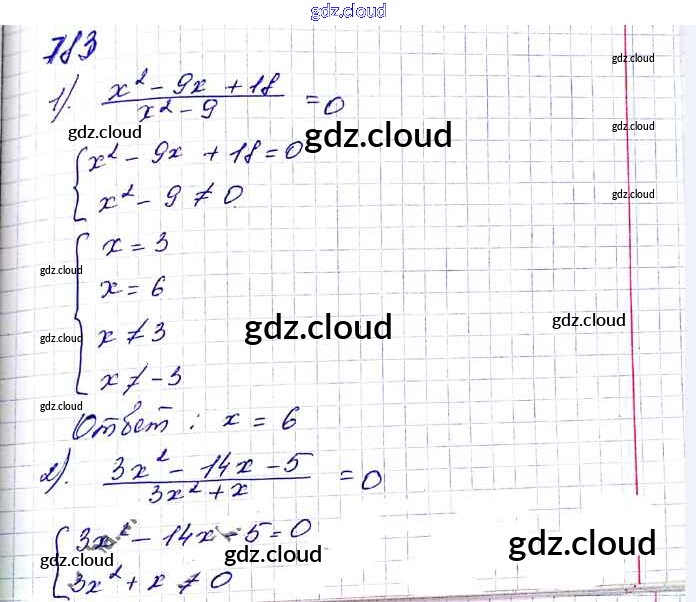 gdz.cloud
783
gdz.cloud
1). (x² - 9x + 18)/(x² - 9) = 0
gdz.cloud gdz.cloud gdz.cloud
{ x² - 9x + 18 = 0
x² - 9 ≠ 0
gdz.cloud
{ x = 3
gdz.cloud
x = 6
x ≠ 3
gdz.cloud gdz.cloud gdz.cloud
x ≠ -3
gdz.cloud
Ответ: x = 6
2). (3x² - 14x - 5)/(3x² + x) = 0
{ 3x² - 14x - 5 = 0
gdz.cloud gdz.cloud gdz.cloud
3x² + x ≠ 0